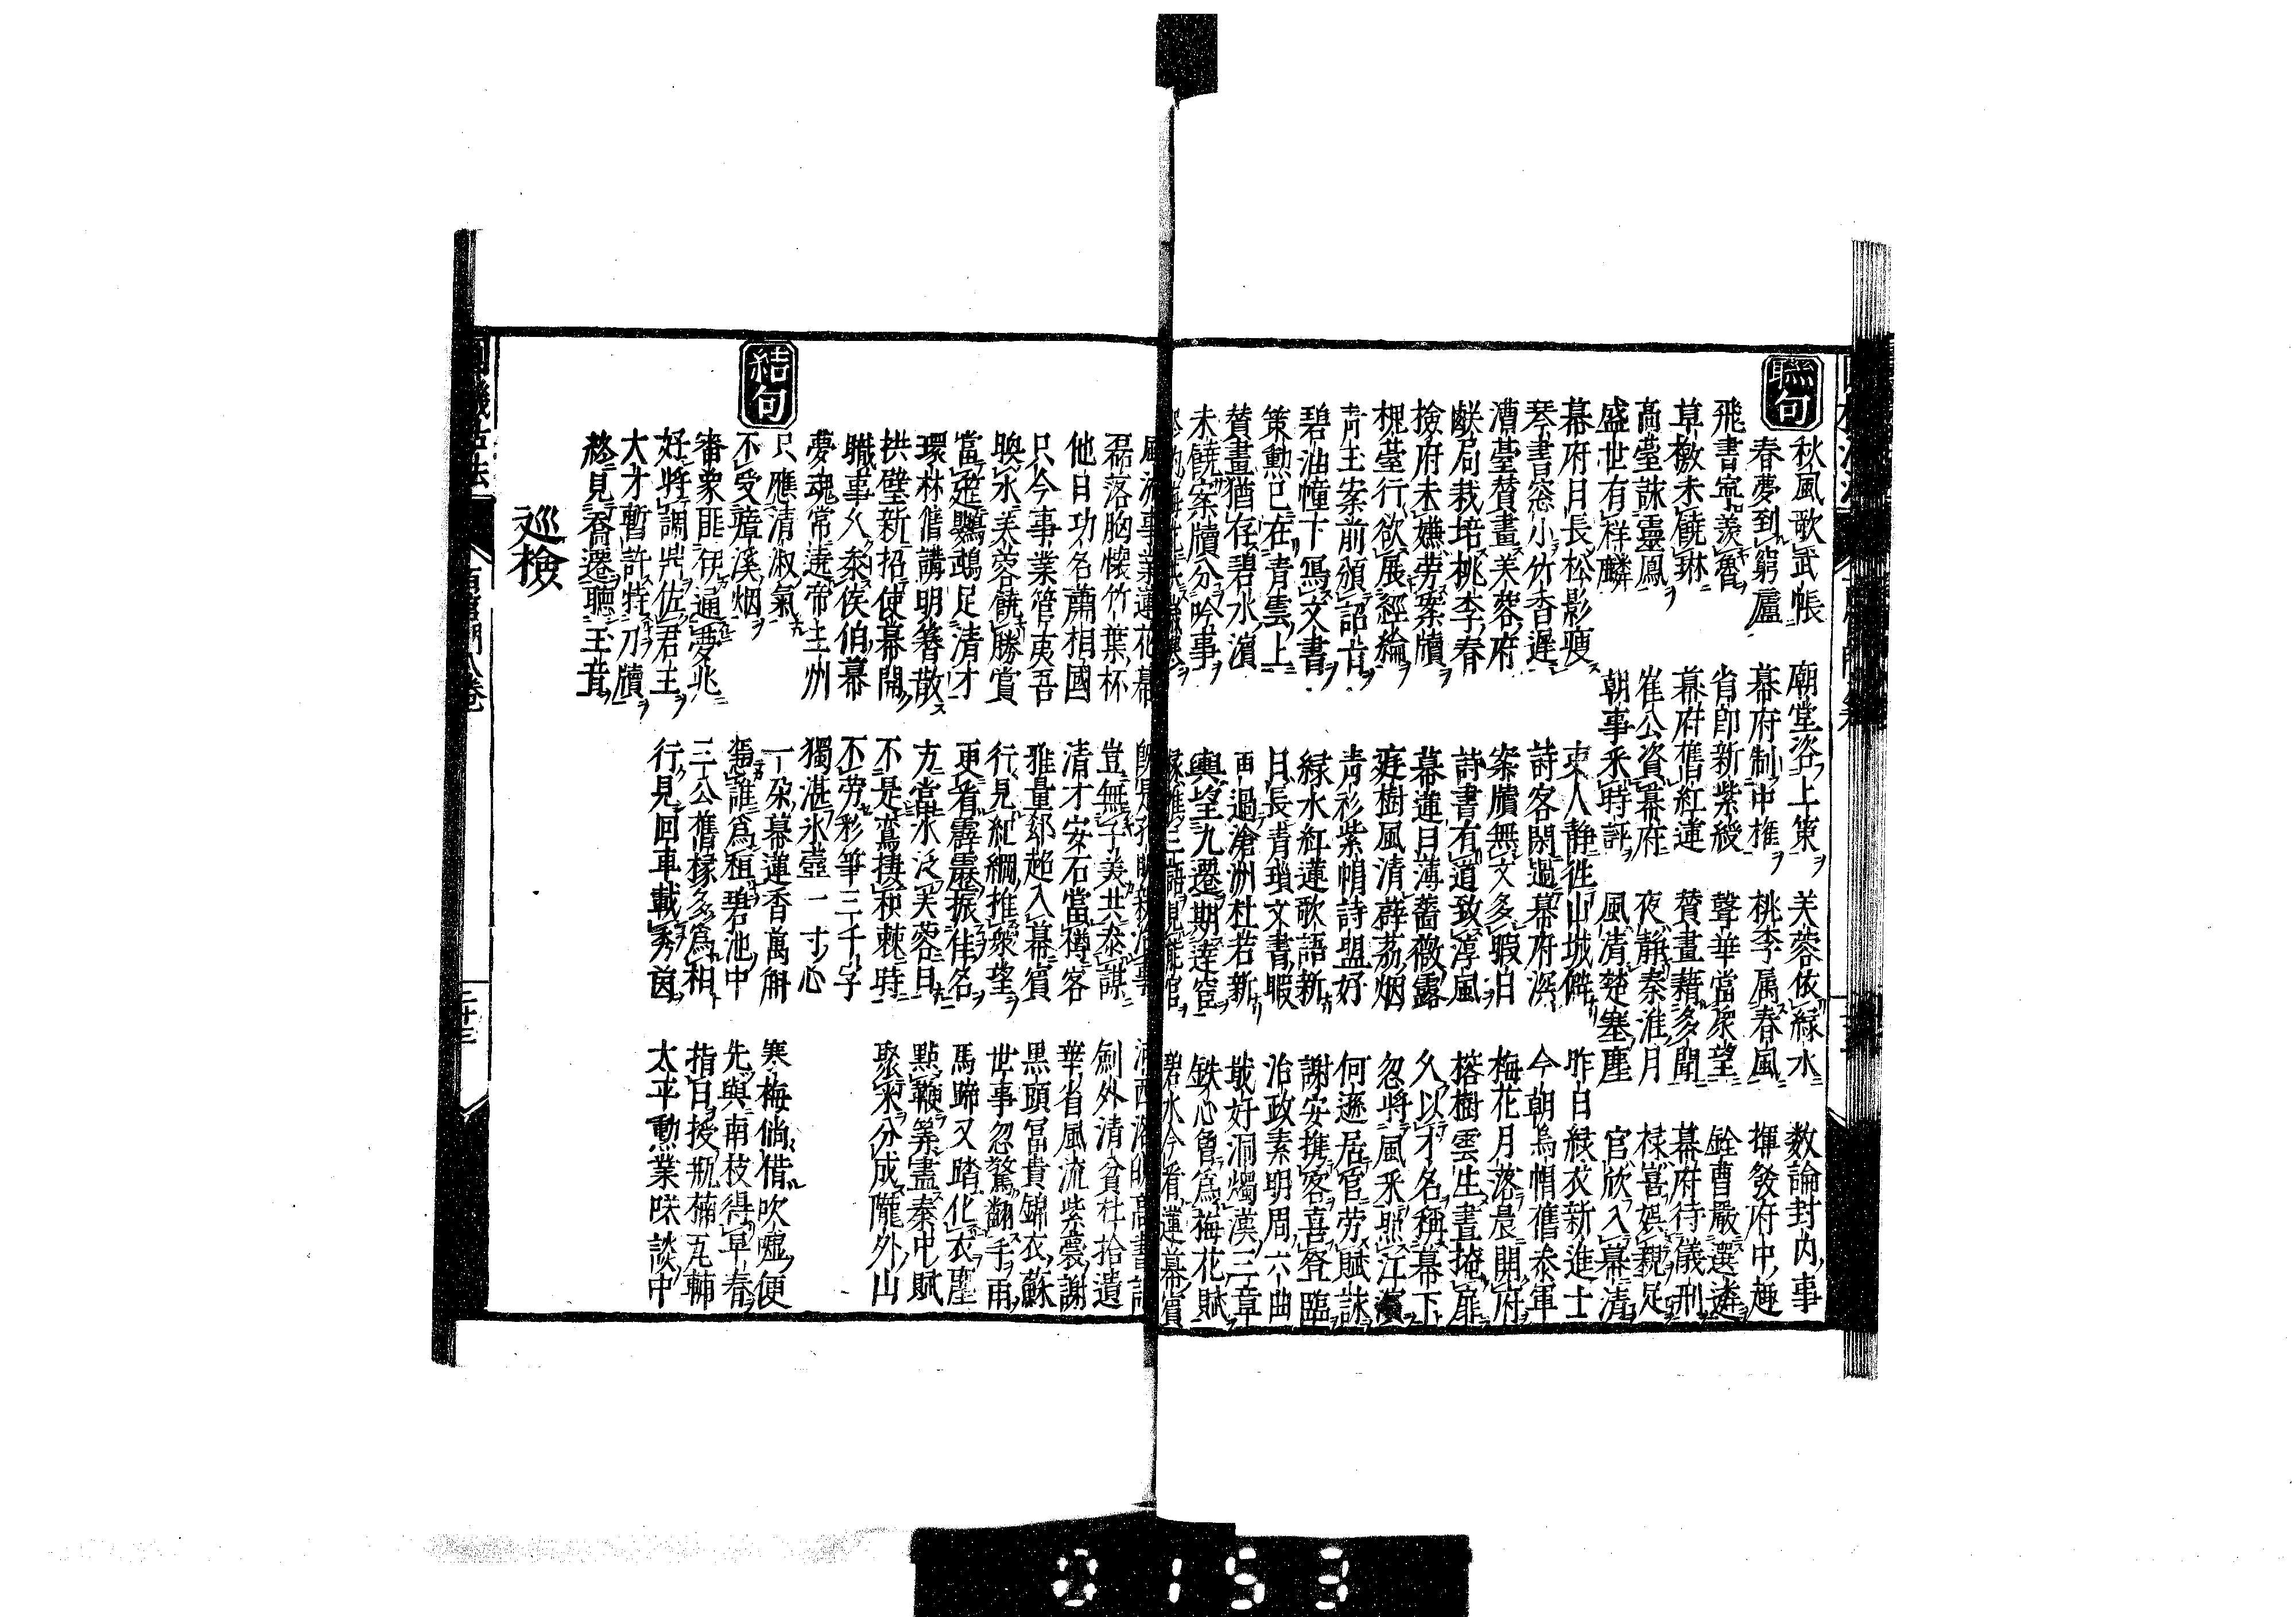 聯句
秋風歌武帳 廟堂洛上策 芙蓉依綠水 数論封内事
春夢到窮廬 幕府制中權 桃李属春風 揮發府中趣
飛書寧羨魯 省郎新紫綬 聲華當衆望 銓曹嚴選遴
草檄未饒琳 幕府舊紅蓮 賛畫藉多聞 幕府待儀刑
高臺詠靈鳳 崔公資幕府 夜靜秦淮月 禄喜娯親足
盛世有祥麟 朝事釆時評 風清楚塞塵 官欣入幕清
幕府日長松影瘦 吏人静徃山城僻 昨日綠衣新進士
琴書窓小竹香遲 詩客閑過幕府深 今朝烏帽舊叅軍
漕臺賛畫芙蓉府 案牘無文多暇日 梅花月落晨開府
鹺局栽培桃李春 詩書有道致淳風 榕樹雲生晝掩扉
撿府未嫌劳案牘 幕蓮日薄薔薇露 久以才名稱幕下
栢臺行欲展經綸 庭樹風清薜荔烟 忽將風釆照江濱
青玉案前頒詔旨 青衫紫帽詩盟好 何遜居官劳賦詠
碧油幢下馮文書 緑水紅蓮歌語新 謝安携客喜登臨
策勲已在青雲上 日長青瑣文書暇 治政素明周六曲
賛畫猶存碧水濵 再過滄洲杜若新 戢好洞燭漢三章
未饒案牘分吟事 輿望九遷期達宦 鉄心魯爲梅花賦
碧水今看蓮幕賓
風流事業蓮花幕
磊落胸懐竹葉杯 豈無子美共泰謀 劍外清貧杜拾遺
他日功名蕭相國 清才安石當樽客 華省風流紫蘷謝
只今事業管夷吾 雅量郄超入幕賓 黒頭冨貴錦衣蘇
映水芙蓉饒勝賞 行見紀綱推衆望 世事忽驚翻手雨
當筵鸚鵡足清才 更看霹靂振佳名 馬蹄又踏化衣塵
環林舊講明簪散 方當水泛芙蓉日 點鞭筭盡秦中賦
拱璧新招使幕開 不是鸞捿枳棘時 聚米分成隴外山
職事久叅侯伯幕 不劳彩筆三千字
夢魂常遶帝王州 獨湛氷壺一寸心
結句
只應清淑氣 一朶幕蓮香萬斛 寒梅倘借吹噓便
不受瘴溪烟 憑誰爲植碧池中 先與南枝得早春
審象匪伊通夢兆 三公舊掾多爲相 指日授瓶補五輔
好將調鼎佐君王 行見回車載秀茵 太平勲業咲談中
大才暫許特刀牘
終見喬遷聽玉音
巡檢